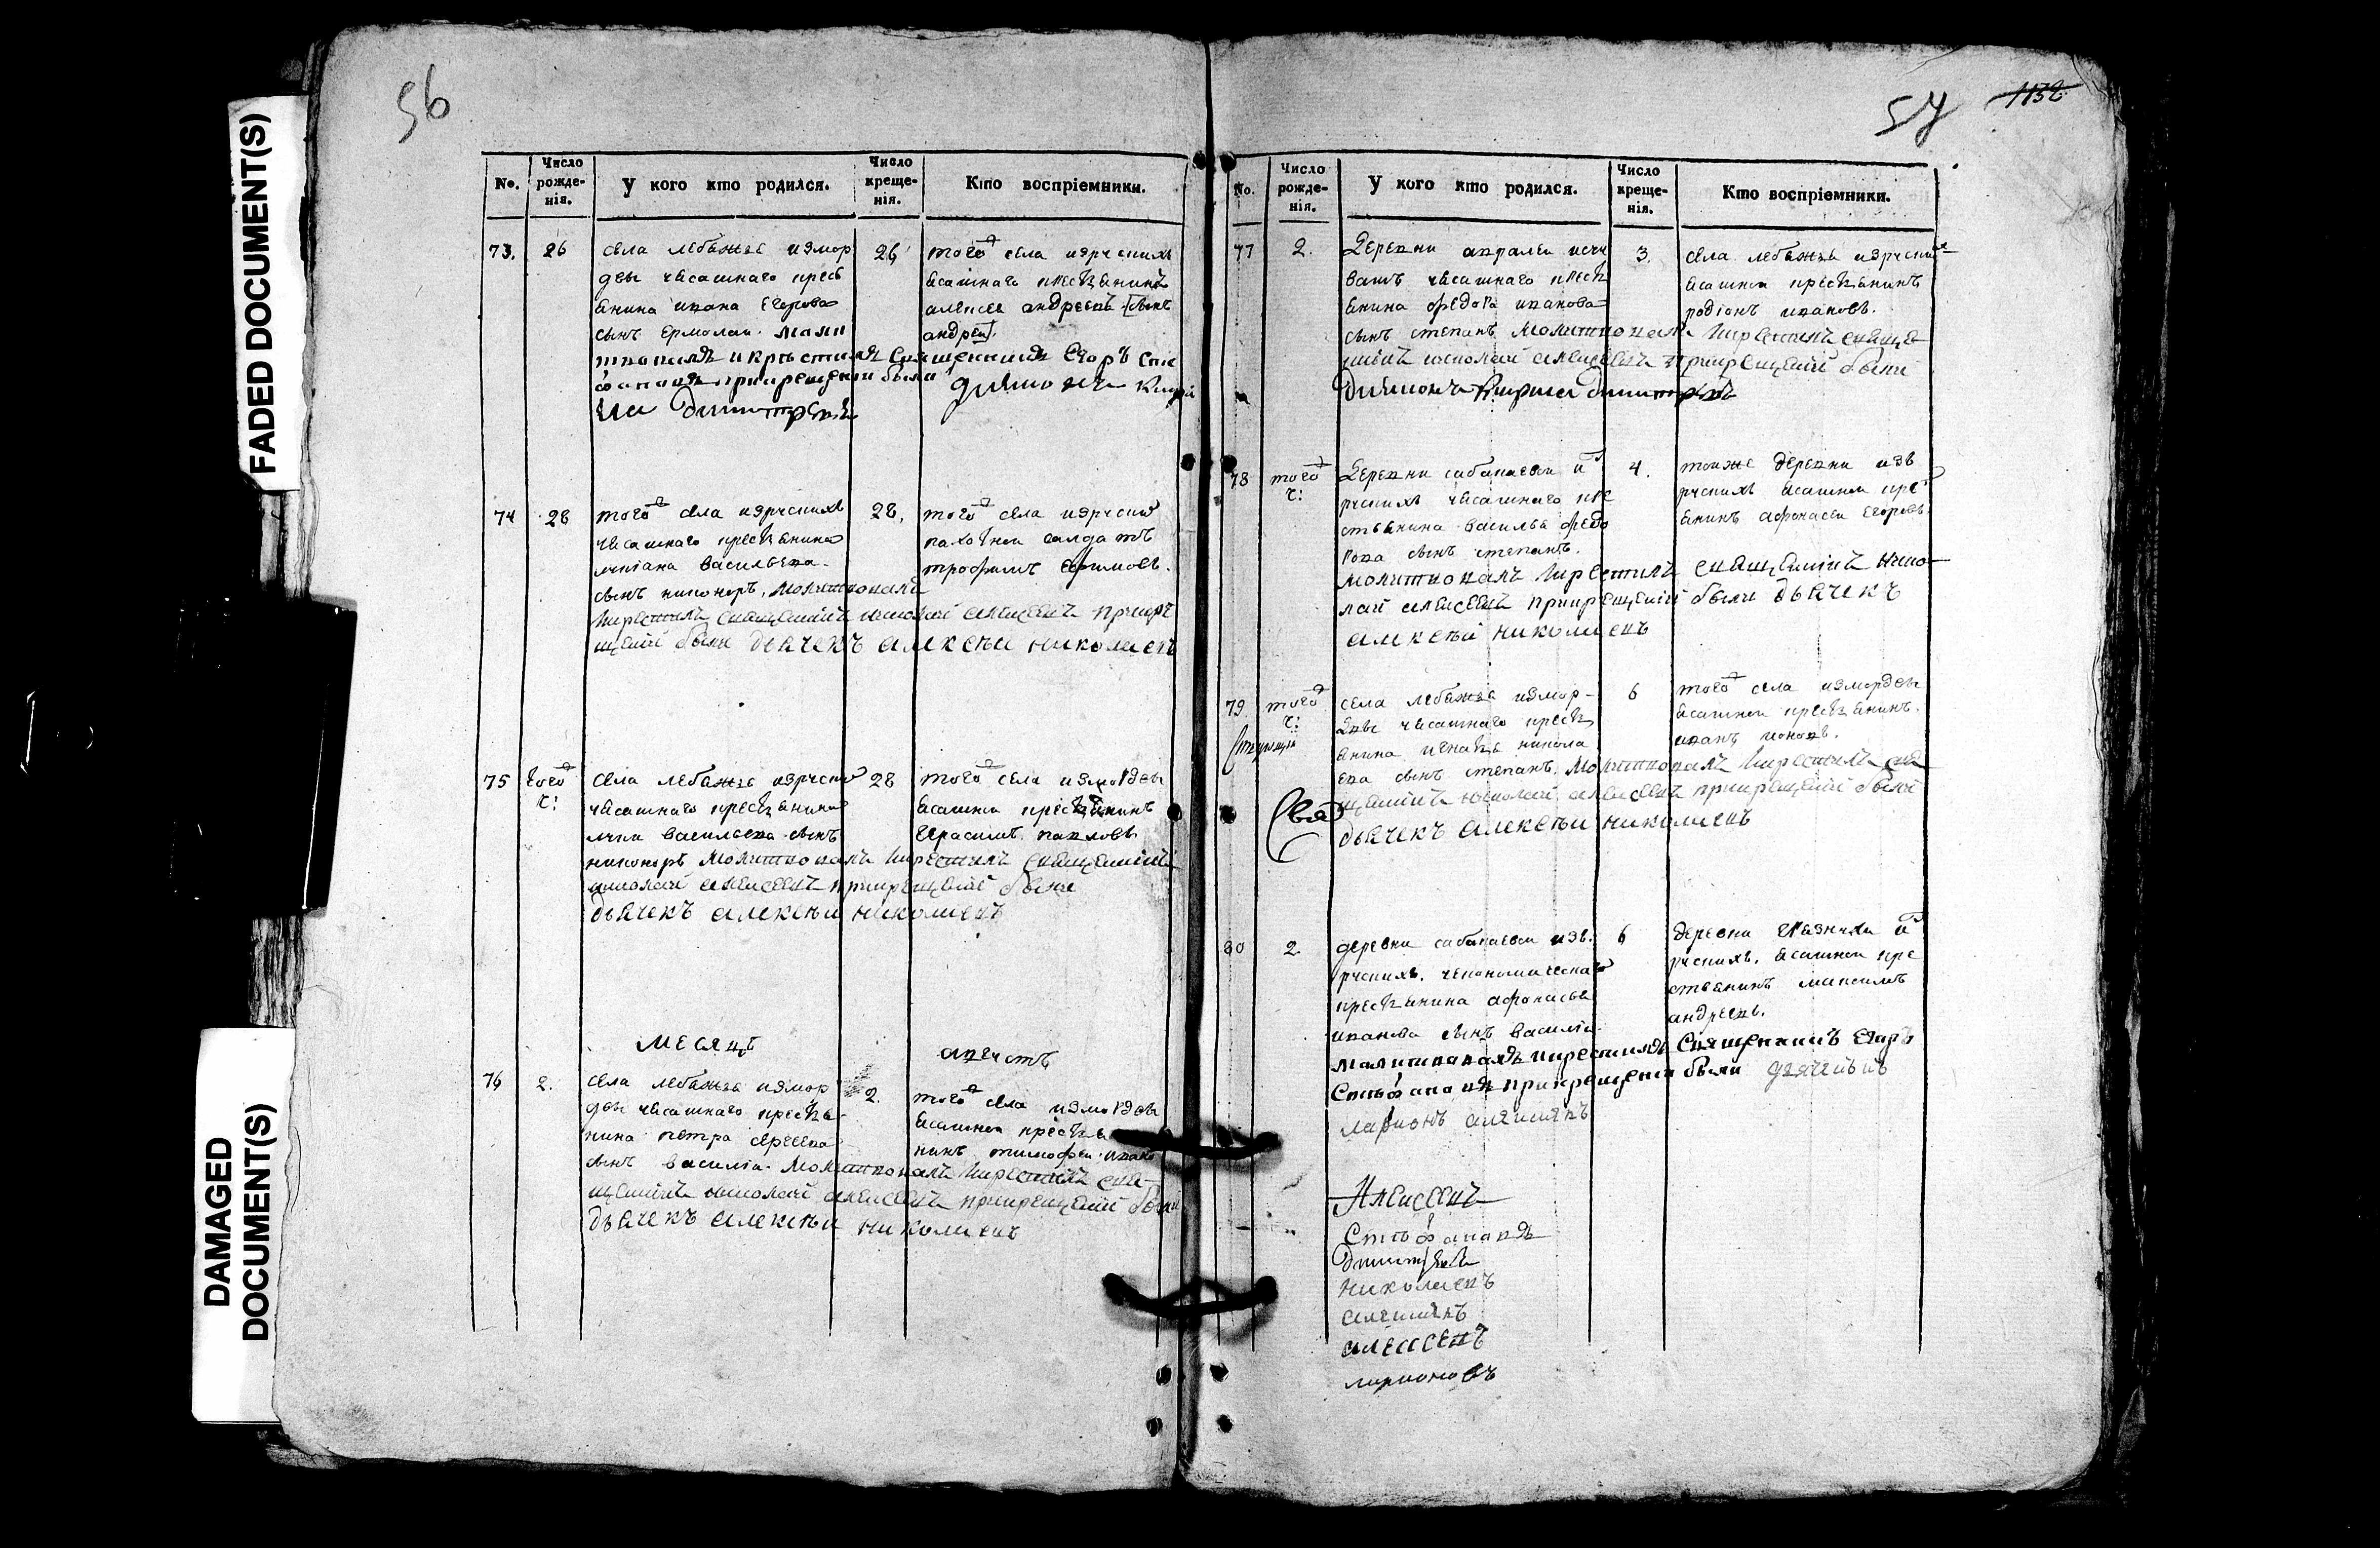 FADED DOCUMENT(S)
DAMAGED
DOCUMENT(S)
56
No.
Число
рожде-
нія.
У кого кто родился.
Число
креще-
нія.
Кто воспріемники.
73.
26
села лебяжья измор
двы ясашнаго крест
янина ивана егорова
сынъ ермолаи. мали
твовалъ и крьстилъ Священникъ Егоръ Сте
фановъ прикрещении были
26
тогожъ села изрускихъ
ясашнаго крестьянинъ
алексеи андреевъ сынъ
андреи
дияконъ Кири
ла Димитревъ
74
28
тогожъ села изрускихъ
ясашнаго крестьянина
васильева
сынъ никоноръ, молитвовалъ
икрестилъ священникъ николаи алексеевъ прикре
щении были дьячекъ алексѣи николаевъ
28,
тогожъ села изруских
пахотнои салдатъ
трофимъ ефимовъ.
75
тогожъ
ч:
села лебяжья изруских
ясашнаго крестьянина
васильева сынъ
никоноръ молитвовалъ икрестилъ священникъ
николаи алексеевъ прикрещении были
дьячекъ алексѣи николаевъ
28
тогожъ села измордвы
ясашнои крестьянинъ
герасимъ павловъ
месяцъ
августъ
76
2.
села лебяжья измор
двы ясашнаго крестья
нина петра сергеева
сынъ василіи. Молитвовалъ икрестилъ свя
щенникъ николаи алексеевъ прикрещении были
дьячекъ алексѣи николаевъ
2.
тогожъ села измордвы
ясашнои крестья
нинъ тимофеи ивано
57
1132
No.
Число
рожде-
нія.
У кого кто родился.
Число
креще-
нія.
Кто воспріемники.
77
2.
Деревни исчу
вашъ ясашнаго крестъ
янина федора иванова
сынъ степанъ молитвовалъ икрестилъ свяще
нникъ николаи алексеевъ прикрещении были
дияконъ Кирила Димитревъ
3.
села лебяжья изруских
ясашнои крестьянинъ
родіонъ ивановъ.
78
тогожъ
ч:
Деревни сабакаевои из
рускихъ ясашнаго кре
стьянина василья федо
рова сынъ степанъ.
молитвовалъ икрестилъ священникъ нико
лаи алексеевъ прикрещении были дьячекъ
алексѣи николаевъ
4.
тоиже деревни изъ
рускихъ ясашнои крест
янинъ афонасеи егоровъ.
79
тогожъ
ч:
села лебяжья измор-
двы ясашнаго крестъ
янина игнатья никола
ева сынъ степанъ. Молитвовалъ икрестилъ свя
щенникъ николаи алексеевъ прикрещении были
дьячекъ алексѣи николаевъ
6
тогожъ села измордвы
ясашнои крестьянинъ.
иванъ ионовъ.
80
2.
деревни сабакаевои изъ
рускихъ. экономическаго
крестьянина афонасья
иванова сынъ василіи
малитвовалъ икрестилъ Священникъ Егоръ
Стьфановъ прикрещении были дячекъ
6
деревни из
рускихъ. ясашнои кре
стьянинъ максимъ
андреевъ.
Алексеевъ
Стьфановъ
Димитревъ
николаевъ
алексеевъ
ларионовъ